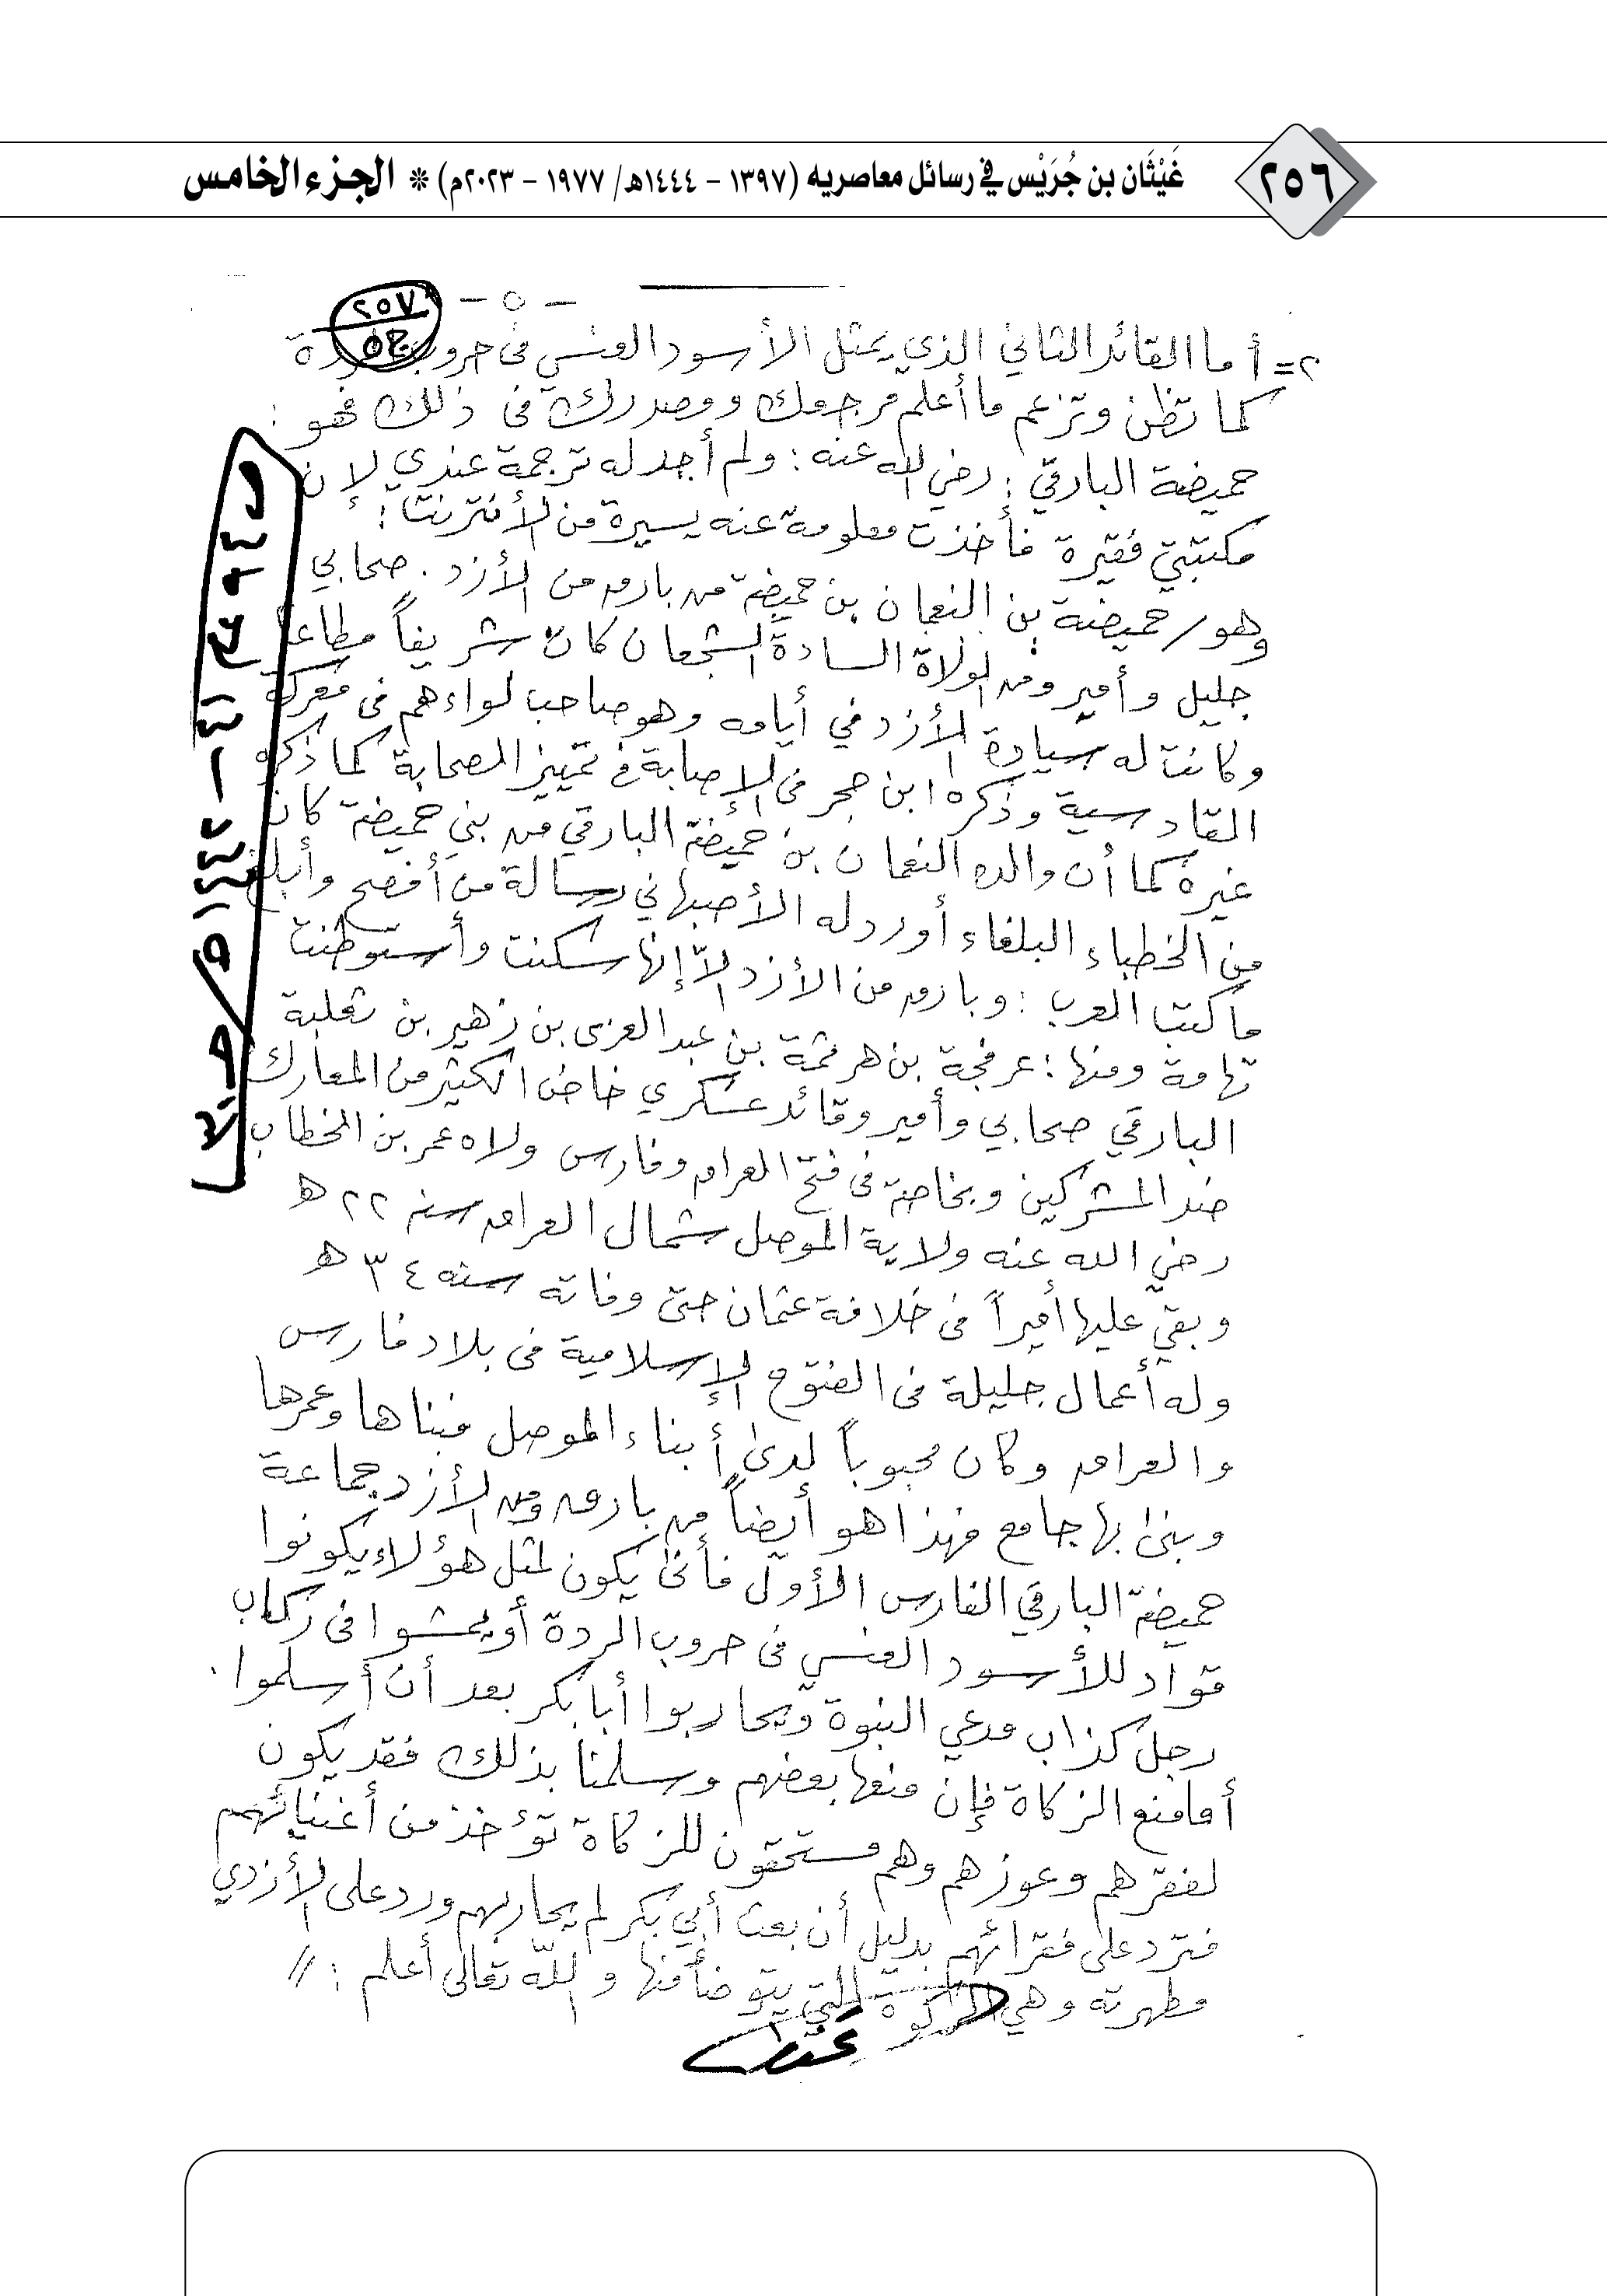 ٢٥٦
غَيْثَان بن جُرَيْس في رسائل معاصريه (١٣٩٧ - ١٤٤٤هـ/ ١٩٧٧ - ٢٠٢٣م) * الجزء الخامس
- ٥ -
٢٥٧
٢= أما القائد الثاني الذي يمثل الأسود العنسي في حروب الردة
كما تظن وتزعم ما أعلم مرجعك ومصدرك في ذلك فهو :
حميضة البارقي : رضي الله عنه : ولم أجد له ترجمة عندي لإن
مكتبتي فقيرة فأخذت معلومة عنه يسيرة من الأنترنت :
وهو/ حميضة بن النعمان بن حميضة من بارق من الأزد . صحابي
جليل وأمير ومن الولاة السادة الشجعان كان شريفاً مطاعاً
وكانت له سيادة الأزد في أيامه وهو صاحب لواءهم في معركة
القادسية وذكره ابن حجر في الإصابة في تمييز الصحابة كما ذكره
غيره كما أن والده النعمان بن حميضة البارقي من بني حميضة كان
من الخطباء البلغاء أورد له الأصبهاني رسالة من أفصح وأبلغ
ما كتب العرب : وبارق من الأزد إلاّ إنها سكنت وأستوطنت
تهامة ومنها : عرفجة بن هرثمة بن عبد العزى بن زهير بن ثعلبة
البارقي صحابي وأمير وقائد عسكري خاض الكثير من المعارك
ضد المشركين وبخاصة في فتح العراق وفارس ولاه عمر بن الخطاب
رضي الله عنه ولاية الموصل شمال العراق سنة ٢٢ هـ
وبقي عليها أميراً في خلافة عثمان حتى وفاته سنه ٣٤ هـ
وله أعمال جليلة في الفتوح الإسلامية في بلاد فارس
والعراق وكان محبوباً لدى أبناء الموصل فبناها وعمرها
وبنى بها جامع فهذا هو أيضاً من بارق ومن الأزد جماعة
حميضة البارقي الفارس الأول فأنى يكون لمثل هؤلاء يكونوا
قواد للأسود العنسي في حروب الردة أو يمشوا في ركاب
رجل كذاب مدعي النبوة ويحاربوا أبا بكر بعد أن أسلموا .
أما منع الزكاة فإن منعها بعضهم وسلمنا بذلك فقد يكون
لفقرهم وعوزهم وهم مستحقون للزكاة تؤخذ من أغنيائهم
فترد على فقرائهم بدليل أن بعث أبي بكر لم يحاربهم ورد على الأزدي
مطهرته وهي الركوة التي يتوضأ منها والله تعالى أعلم : //